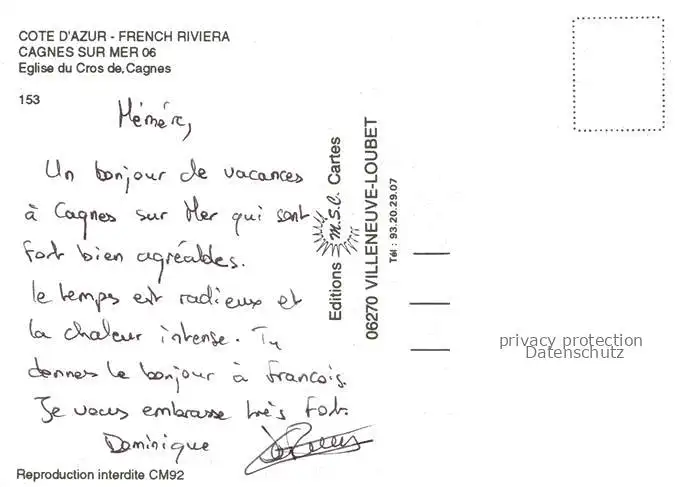 COTE D'AZUR - FRENCH RIVIERA
CAGNES SUR MER 06
Eglise du Cros de Cagnes
153
Mémère,
Un bonjour de vacances
à Cagnes sur Mer qui sont
fort bien agréables.
le temps est radieux et
la chaleur intense. Tu
donnes le bonjour à François.
Je vous embrasse très fort.
Dominique
Reproduction interdite CM92
Editions M.S.C. Cartes
06270 VILLENEUVE-LOUBET
Tél : 93.20.29.07
privacy protection
Datenschutz